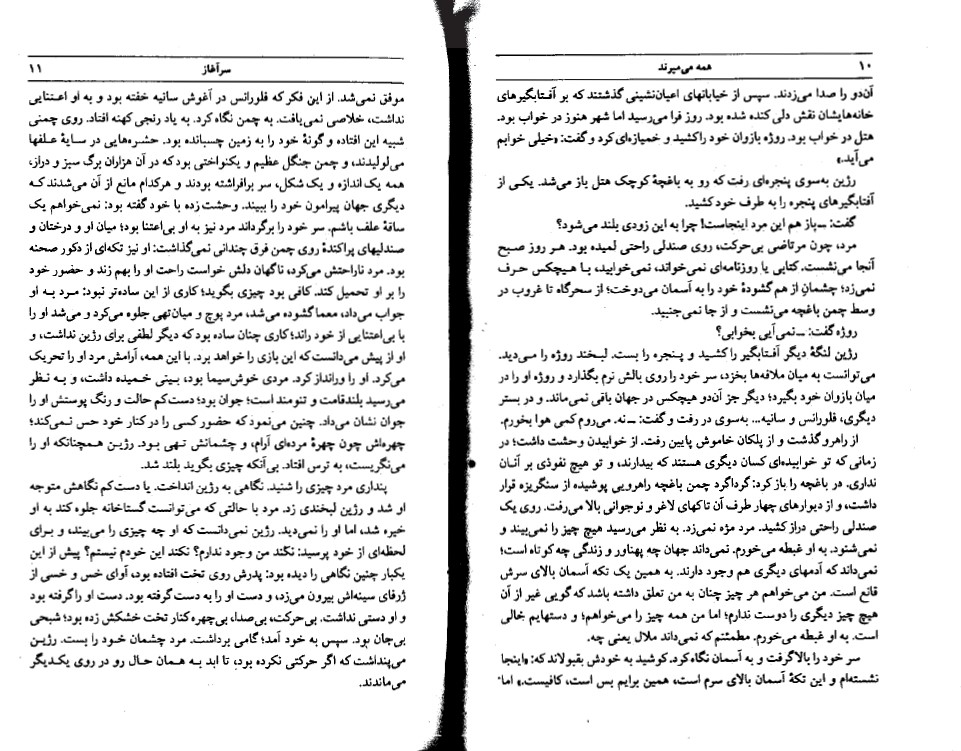 ۱۰
همه می‌میرند
آن‌دو را صدا می‌زدند. سپس از خیابانهای اعیان‌نشینی گذشتند که بر آفتابگیرهای
خانه‌هایشان نقش دلی کنده شده بود. روز فرا می‌رسید اما شهر هنوز در خواب بود.
هتل در خواب بود. روژه بازوان خود را کشید و خمیازه‌ای کرد و گفت: «خیلی خوابم
می‌آید.»
رژین به‌سوی پنجره‌ای رفت که رو به باغچهٔ کوچک هتل باز می‌شد. یکی از
آفتابگیرهای پنجره را به طرف خود کشید.
گفت: ــ باز هم این مرد اینجاست! چرا به این زودی بلند می‌شود؟
مرد، چون مرتاضی بی‌حرکت، روی صندلی راحتی لمیده بود. هر روز صبح
آنجا می‌نشست. کتابی یا روزنامه‌ای نمی‌خواند، نمی‌خوابید، با هیچکس حرف
نمی‌زد؛ چشمان از هم گشودهٔ خود را به آسمان می‌دوخت؛ از سحرگاه تا غروب در
وسط چمن باغچه می‌نشست و از جا نمی‌جنبید.
روژه گفت: ــ نمی‌آیی بخوابی؟
رژین لنگهٔ دیگر آفتابگیر را کشید و پنجره را بست. لبخند روژه را می‌دید.
می‌توانست به میان ملافه‌ها بخزد، سر خود را روی بالش نرم بگذارد و روژه او را در
میان بازوان خود بگیرد؛ دیگر جز آن‌دو هیچکس در جهان باقی نمی‌ماند. و در بستر
دیگری، فلورانس و سانیه... به‌سوی در رفت و گفت: ــ نه. می‌روم کمی هوا بخورم.
از راهرو گذشت و از پلکان خاموش پایین رفت. از خوابیدن وحشت داشت؛ در
زمانی که تو خوابیده‌ای کسان دیگری هستند که بیدارند، و تو هیچ نفوذی بر آنان
نداری. در باغچه را باز کرد: گرداگرد چمن باغچه راهرویی پوشیده از سنگریزه قرار
داشت، و از دیوارهای چهار طرف آن تاکهای لاغر و نوجوانی بالا می‌رفت. روی یک
صندلی راحتی دراز کشید. مرد مژه نمی‌زد. به نظر می‌رسید هیچ چیز را نمی‌بیند و
نمی‌شنود. به او غبطه می‌خورم. نمی‌داند جهان چه پهناور و زندگی چه کوتاه است؛
نمی‌داند که آدمهای دیگری هم وجود دارند. به همین یک تکه آسمان بالای سرش
قانع است. من می‌خواهم هر چیز چنان به من تعلق داشته باشد که گویی غیر از آن
هیچ چیز دیگری را دوست ندارم؛ اما من همه چیز را می‌خواهم؛ و دستهایم خالی
است. به او غبطه می‌خورم. مطمئنم که نمی‌داند ملال یعنی چه.
سر خود را بالا گرفت و به آسمان نگاه کرد. کوشید به خودش بقبولاند که: «اینجا
نشسته‌ام و این تکهٔ آسمان بالای سرم است، همین برایم بس است، کافیست.» اما
سرآغاز
۱۱
موفق نمی‌شد. از این فکر که فلورانس در آغوش سانیه خفته بود و به او اعتنایی
نداشت، خلاصی نمی‌یافت. به چمن نگاه کرد. به یاد رنجی کهنه افتاد. روی چمنی
شبیه این افتاده و گونهٔ خود را به زمین چسبانده بود. حشره‌هایی در سایهٔ علفها
می‌لولیدند، و چمن جنگل عظیم و یکنواختی بود که در آن هزاران برگ سبز و دراز،
همه یک اندازه و یک شکل، سر برافراشته بودند و هرکدام مانع از آن می‌شدند که
دیگری جهان پیرامون خود را ببیند. وحشت زده با خود گفته بود: نمی‌خواهم یک
ساقهٔ علف باشم. سر خود را برگرداند مرد نیز به او بی‌اعتنا بود؛ میان او و درختان و
صندلیهای پراکندهٔ روی چمن فرق چندانی نمی‌گذاشت: او نیز تکه‌ای از دکور صحنه
بود. مرد ناراحتش می‌کرد، ناگهان دلش خواست راحت او را بهم زند و حضور خود
را بر او تحمیل کند. کافی بود چیزی بگوید؛ کاری از این ساده‌تر نبود: مرد به او
جواب می‌داد، معما گشوده می‌شد، مرد پوچ و میان‌تهی جلوه می‌کرد و می‌شد او را
با بی‌اعتنایی از خود راند؛ کاری چنان ساده بود که دیگر لطفی برای رژین نداشت، و
او از پیش می‌دانست که این بازی را خواهد برد. با این همه، آرامش مرد او را تحریک
می‌کرد. او را ورانداز کرد. مردی خوش‌سیما بود، بینی خمیده داشت، و به نظر
می‌رسید بلندقامت و تنومند است؛ جوان بود؛ دست‌کم حالت و رنگ پوستش او را
جوان نشان می‌داد. چنین می‌نمود که حضور کسی را در کنار خود حس نمی‌کند؛
چهره‌اش چون چهرهٔ مرده‌ای آرام، و چشمانش تهی بود. رژین همچنانکه او را
می‌نگریست، به ترس افتاد. بی‌آنکه چیزی بگوید بلند شد.
پنداری مرد چیزی را شنید. نگاهی به رژین انداخت. یا دست‌کم نگاهش متوجه
او شد و رژین لبخندی زد. مرد با حالتی که می‌توانست گستاخانه جلوه کند به او
خیره شد، اما او را نمی‌دید. رژین نمی‌دانست که او چه چیزی را می‌بیند، و برای
لحظه‌ای از خود پرسید: نکند من وجود ندارم؟ نکند این خودم نیستم؟ پیش از این
یکبار چنین نگاهی را دیده بود: پدرش روی تخت افتاده بود، آوای خس و خسی از
ژرفای سینه‌اش بیرون می‌زد، و دست او را به دست گرفته بود. دست او را گرفته بود
و او دستی نداشت. بی‌حرکت، بی‌صدا، بی‌چهره کنار تخت خشکش زده بود؛ شبحی
بی‌جان بود. سپس به خود آمد؛ گامی برداشت. مرد چشمان خود را بست. رژین
می‌پنداشت که اگر حرکتی نکرده بود، تا ابد به همان حال رو در روی یکدیگر
می‌ماندند.